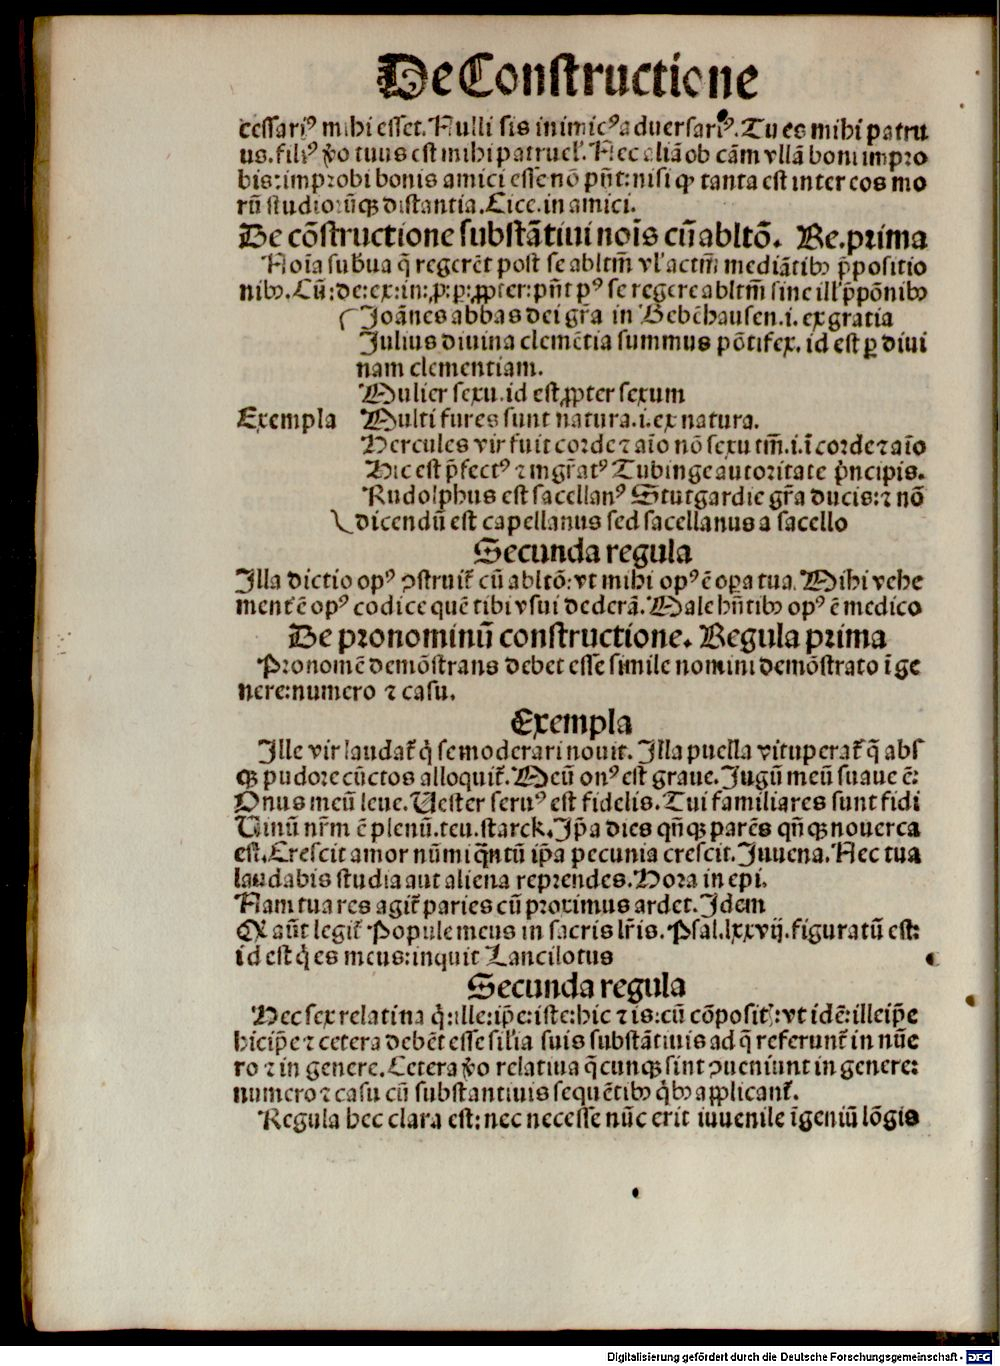 De Constructione
cessariꝰ mihi esset. Nulli sis inimicꝰ aduersariꝰ. Tu es mihi patru
us. filiꝰ v̊o tuus est mihi patruel'. Nec aliā ob cām vllā boni impro
bis: improbi bonis amici esse nō pn̄t: nisi ꝙ tanta est inter eos mo
rū studiorūqꝫ distantia. Cice. in amici.
De cōstructione substātiui nois̄ cū abltō. Re. prima
Noīa subūa q̄ regerēt post se abltm̄ vl' actm̄ mediātibꝰ p̄positio
nibꝰ. Cū: de: ex: in: p̱: ꝑ: ꝓpter: pn̄t pꝰ se regere abltm̄ sine ill' p̄pōnibꝰ
Joānes abbas dei gr̄a in Bebēhausen .i. ex gratia
Julius diuina clemētia summus pōtifex. id est ꝑ diui
nam clementiam.
Mulier sexu. id est ꝓpter sexum
Exempla Multi fures sunt natura .i. ex natura.
Hercules vir fuit corde ⁊ aīo nō sexu tm̄ .i. ī corde ⁊ aīo
Hic est p̄fectꝰ ⁊ mgr̄atꝰ Tubinge autoritate pͥncipis.
Rudolphus est sacellanꝰ Stutgardie gr̄a ducis: ⁊ nō
dicendū est capellanus sed sacellanus a sacello
Secunda regula
Illa dictio opꝰ ꝯstruit̄ cū abltō: vt mihi opꝰ ē oꝑa tua. Mihi vehe
mentˀ ē opꝰ codice quē tibi vsui dederā. Male hn̄tibꝰ opꝰ ē medico
De pronominū constructione. Regula prima
Pronomē demōstrans debet esse simile nomini demōstrato ī ge
nere: numero ⁊ casu.
Exempla
Ille vir laudat̄ qͥ se moderari nouit. Illa puella vituperat̄ q̄ abs
qꝫ pudore cūctos alloquit̄. Meū onꝰ est graue. Jugū meū suaue ē:
Onus meū leue. Uester seruꝰ est fidelis. Tui familiares sunt fidi
Uinū nr̄m ē plenū. teu. starck. Ip̄a dies qn̄qꝫ parēs qn̄qꝫ nouerca
est. Crescit amor nūmi q̄ntū ip̄a pecunia crescit. Juuena. Nec tua
laudabis studia aut aliena reprendes. Hora in epi.
Nam tua res agit̄ paries cū proximus ardet. Idem
Qꝫ aūt legit̄ Popule meus in sacris lr̄is. Psal. lxxvij. figuratū est:
id est qͥ es meus: inquit Lancilotus
Secunda regula
Hec sex relatina qͥ: ille: ip̄e: iste: hic ⁊ is: cū cōpositꝭ: vt idē: ille ip̄e
hic ip̄e ⁊ cetera debēt esse sil'ia suis substātiuis ad q̄ referunt̄ in nūe
ro ⁊ in genere. Cetera v̊o relatiua q̄cunqꝫ sint ꝯueniunt in genere:
numero ⁊ casu cū substantiuis sequētibꝰ qͥbꝰ applicant̄.
Regula hec clara est: nec necesse nūc erit iuuenile īgeniū lōgis
Digitalisierung gefördert durch die Deutsche Forschungsgemeinschaft - DFG